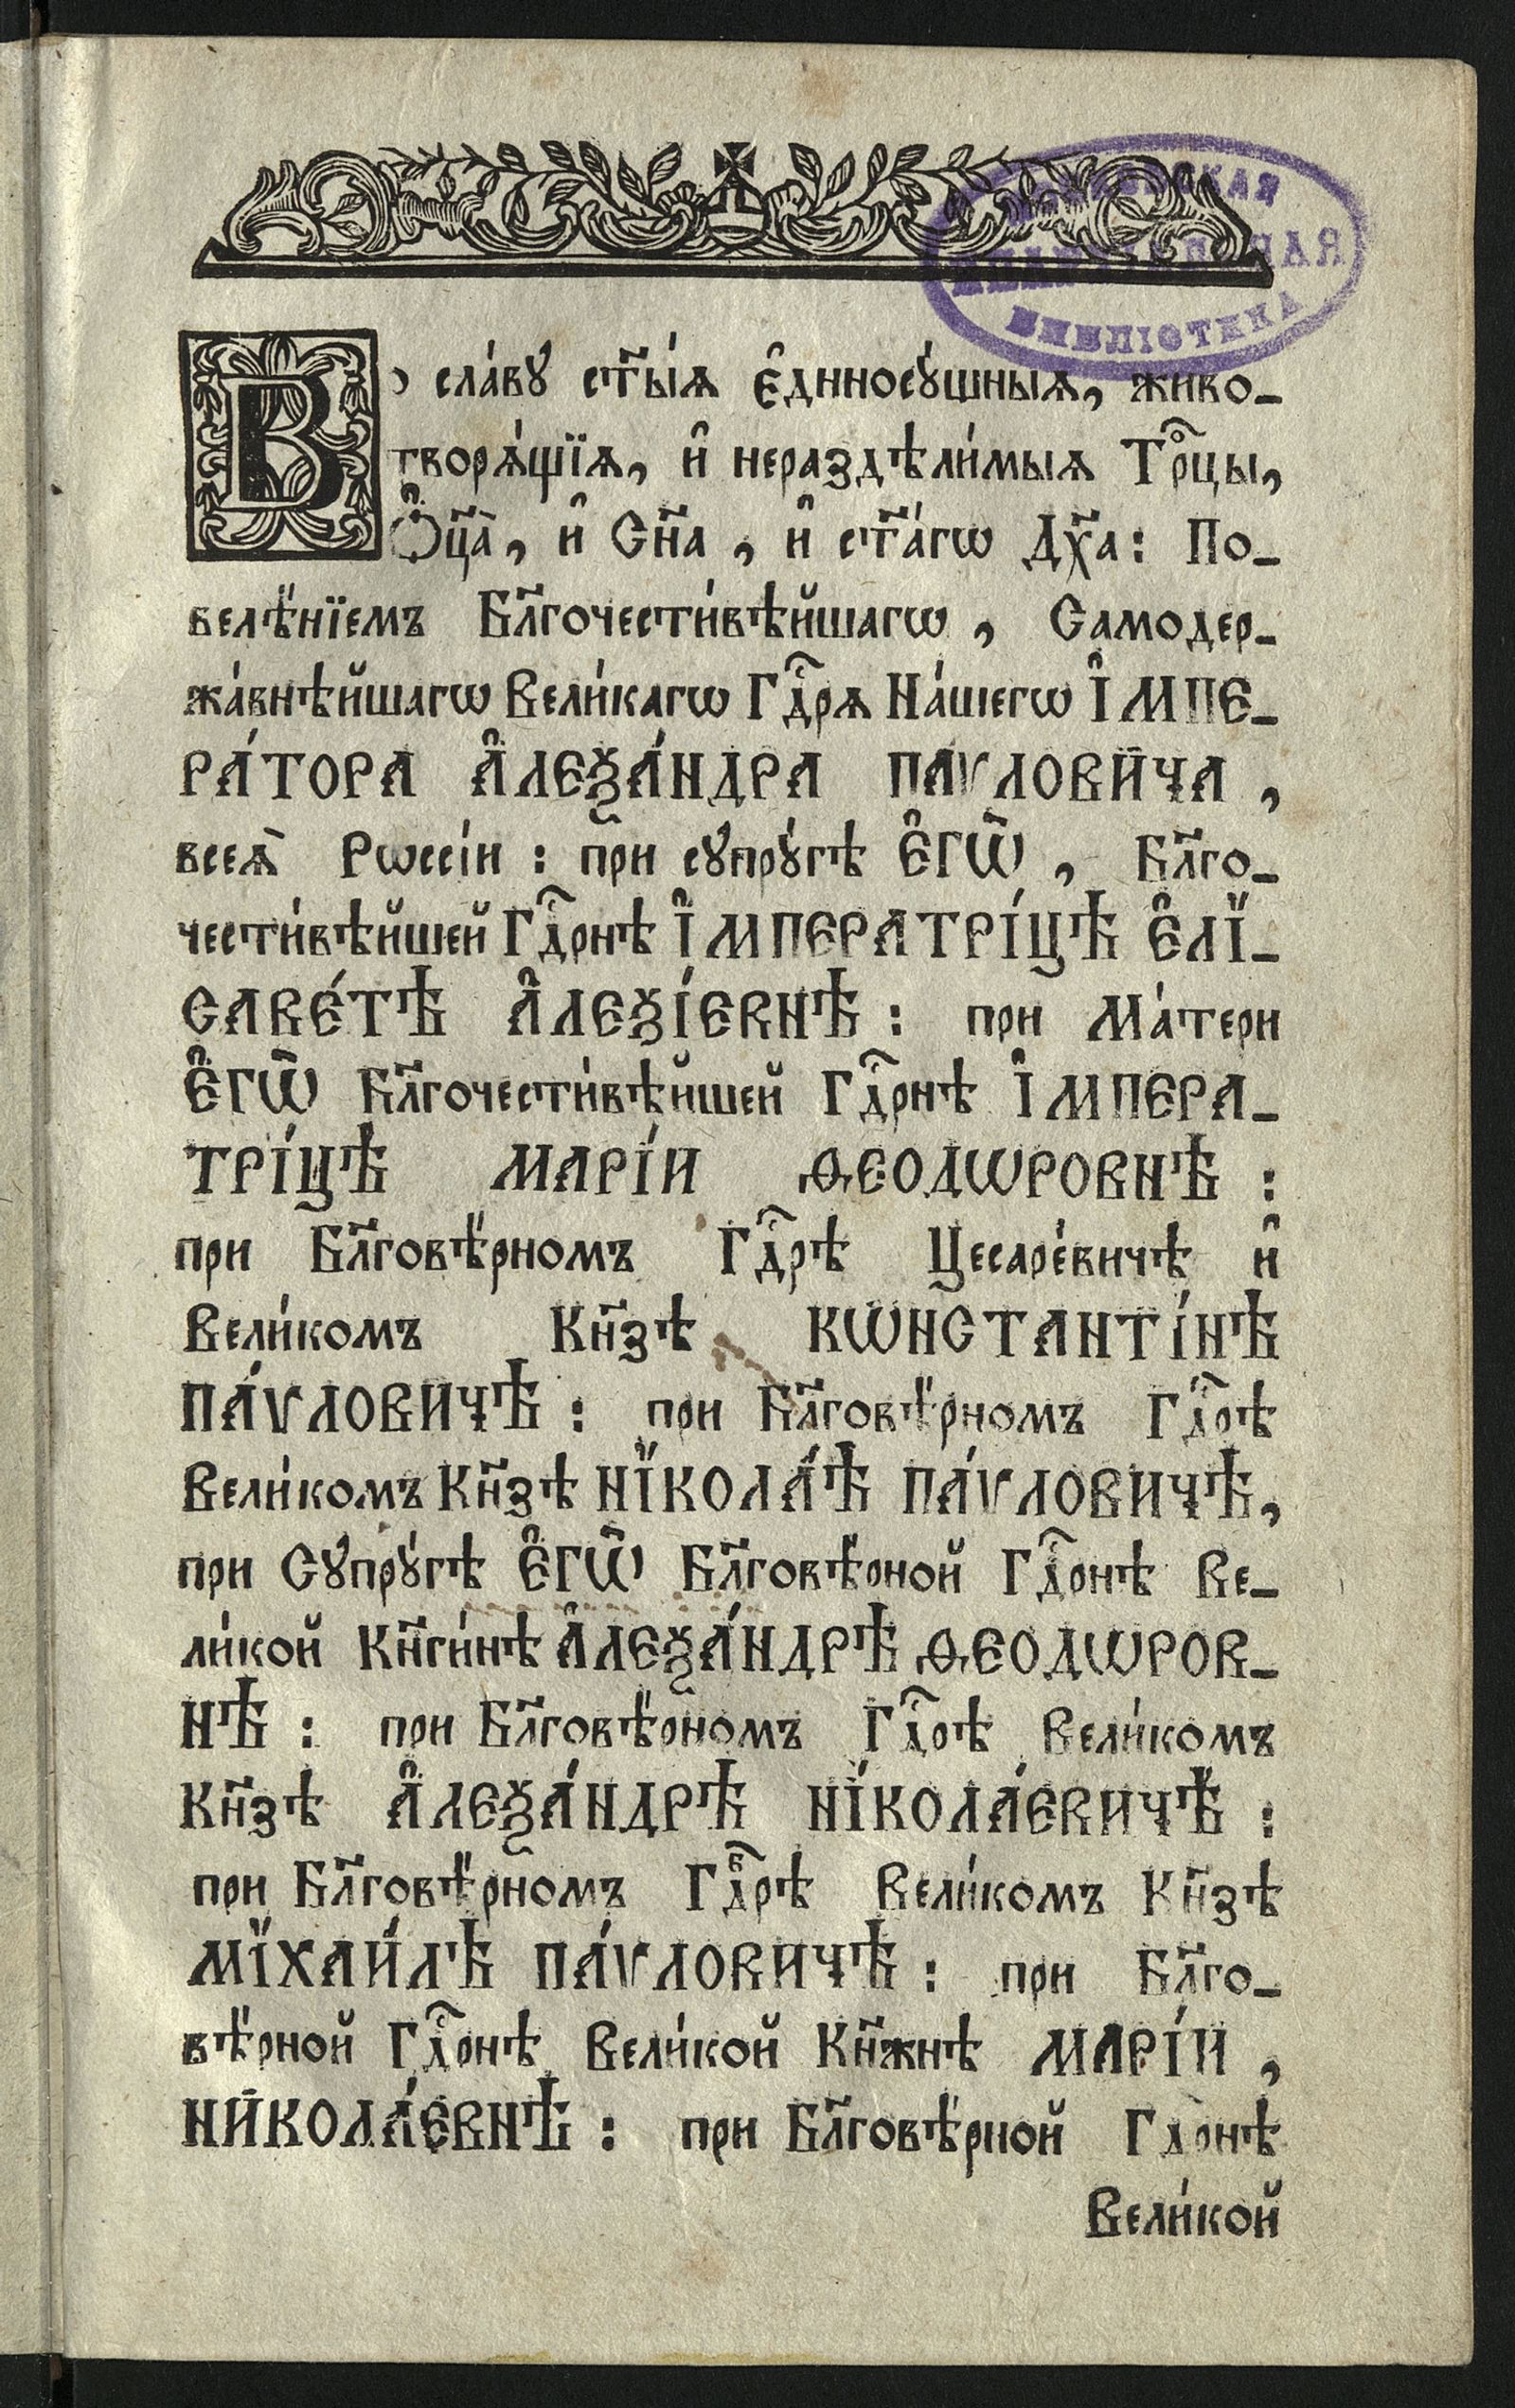 Во сла́вꙋ ст҃ы́ѧ є҆диносꙋ́щныѧ, живо-
творѧ́щїѧ, и҆ нераздѣли́мыѧ Трⷪ҇цы,
Ѻ҆ц҃а̀, и҆ Сн҃а, и҆ ст҃а́гѡ Дх҃а: По-
велѣ́нїемъ Бл҃гочести́вѣйшагѡ, Самодер-
жа́внѣйшагѡ Вели́кагѡ Гдⷭ҇рѧ На́шегѡ І҆МПЕ-
РА́ТОРА А҆ЛЕѮА́НДРА ПА́ѴЛОВИЧА,
всеѧ̀ Рѡссі́и: при сꙋпрꙋ́гѣ Є҆ГѠ̀, Бл҃го-
чести́вѣйшей Гдⷭ҇рнѣ І҆МПЕРАТРІ́ЦѢ Є҆ЛІ-
САВЕ́ТѢ А҆ЛЕѮІ́ЕВНѢ: при Ма́тери
Є҆ГѠ̀ Бл҃гочести́вѣйшей Гдⷭ҇рнѣ І҆МПЕРА-
ТРІ́ЦѢ МАРІ́И ѲЕОДѠРОВНѢ:
при Бл҃говѣ́рномъ Гдⷭ҇рѣ Цесаре́вичѣ и҆
Вели́комъ Кн҃зѣ КѠНСТАНТІ́НѢ
ПА́ѴЛОВИЧѢ: при Бл҃говѣ́рномъ Гдⷭ҇рѣ
Вели́комъ Кн҃зѣ НІКОЛА́Ѣ ПА́ѴЛОВИЧѢ,
при Сꙋпрꙋ́гѣ Є҆ГѠ̀ Бл҃говѣ́рной Гдⷭ҇рнѣ Ве-
ли́кой Кн҃ги́нѣ А҆ЛЕѮА́НДРѢ ѲЕОДѠРОВ-
НѢ: при Бл҃говѣ́рномъ Гдⷭ҇рѣ Вели́комъ
Кн҃зѣ А҆ЛЕѮА́НДРѢ НІКОЛА́ЕВИЧѢ:
при Бл҃говѣ́рномъ Гдⷭ҇рѣ Вели́комъ Кн҃зѣ
МІХАИ́ЛѢ ПА́ѴЛОВИЧѢ: при Бл҃го-
вѣ́рной Гдⷭ҇рнѣ Вели́кой Кн҃жнѣ МАРІ́И,
НИКОЛА́ЕВНѢ: при Бл҃говѣ́рной Гдрнѣ
Вели́кой
БИБЛІОТЕКА